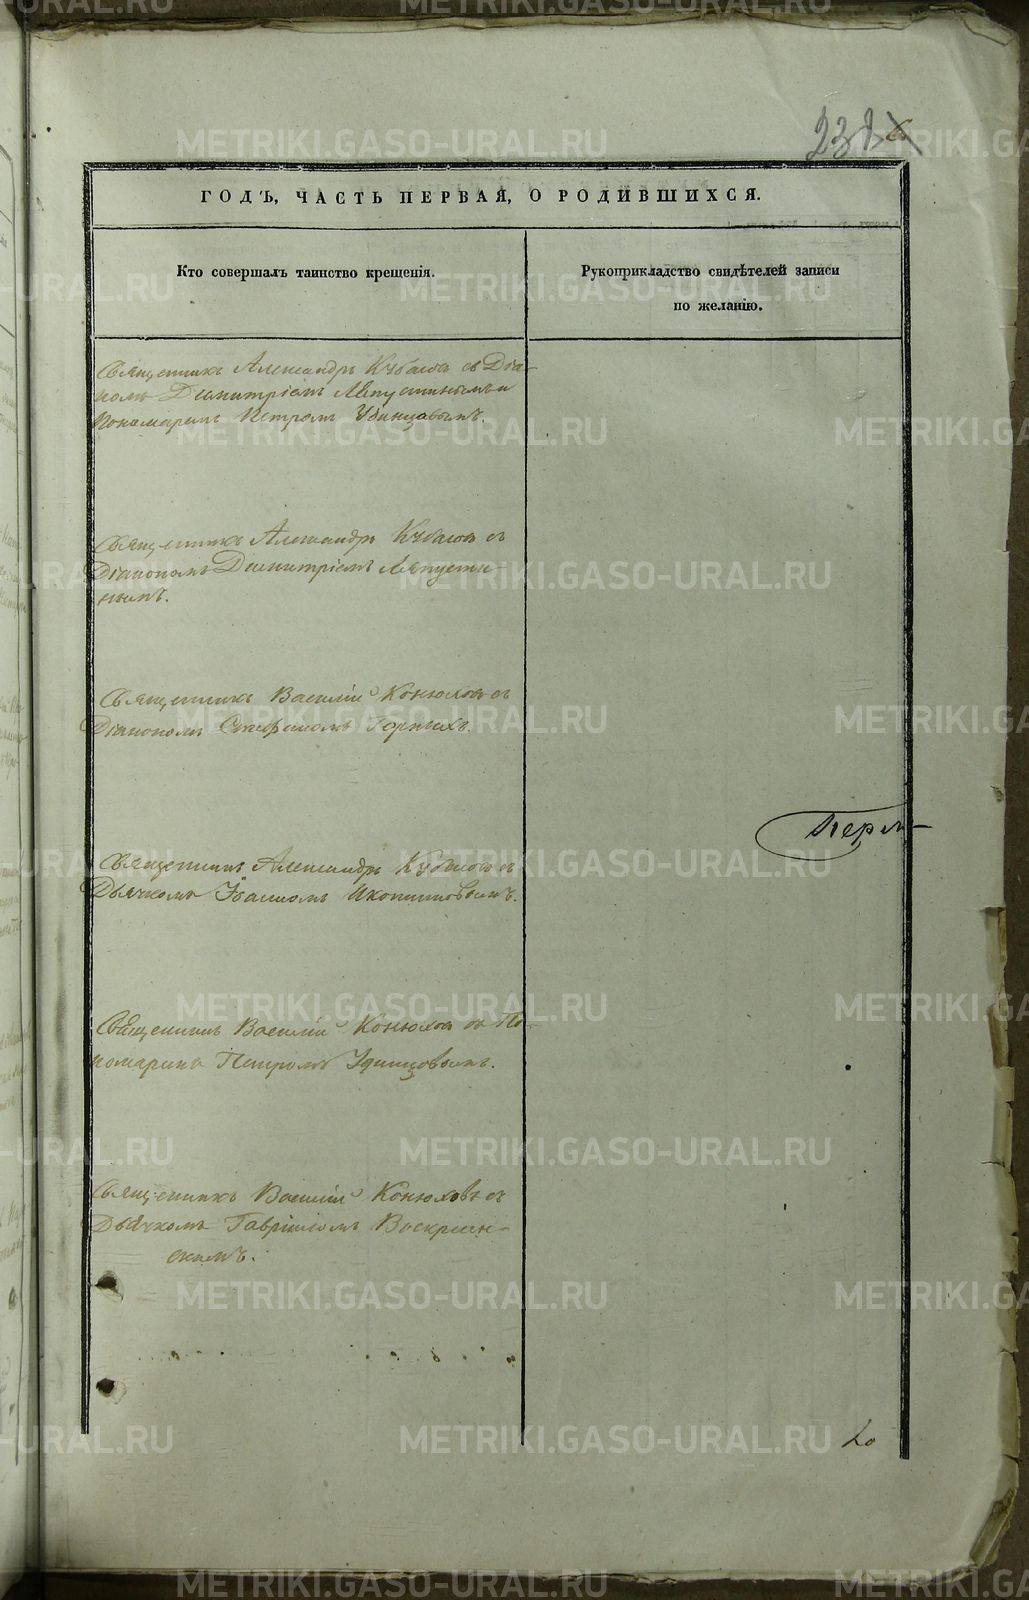 ГОДЪ, ЧАСТЬ ПЕРВАЯ, О РОДИВШИХСЯ.
Кто совершалъ таинство крещенія.
Рукоприкладство свидѣтелей записи
по желанію.
Священникъ Александръ Кубасов съ Діа-
кономъ Димитріемъ Ляпустинымъ и
Пономаремъ Петромъ Удинцовымъ.
Священникъ Александръ Кубасов съ
Діакономъ Димитріемъ Ляпусти-
нымъ.
Священникъ Василій Конюхов съ
Діакономъ Стефаномъ Горныхъ.
Перм-
Священникъ Александръ Кубасов съ
Дьячкомъ Иваномъ
Священникъ Василій Конюхов съ По-
номаремъ Петромъ Удинцовымъ.
Священникъ Василій Конюховъ съ
Дьячкомъ Гавріиломъ Воскресен-
скимъ.
METRIKI.GASO-URAL.RU